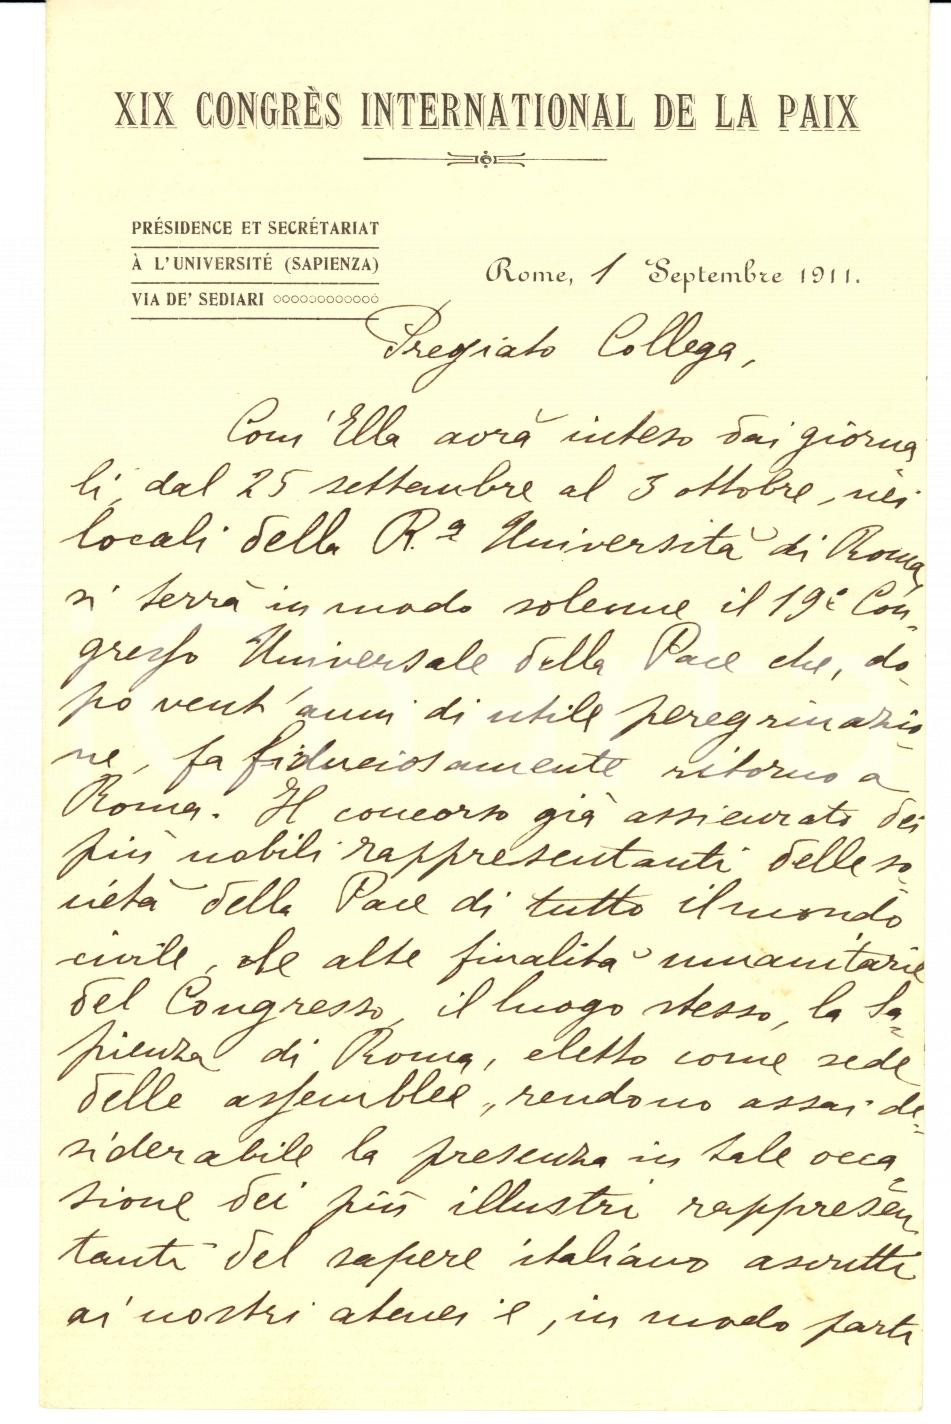 XIX CONGRÈS INTERNATIONAL DE LA PAIX
PRÉSIDENCE ET SECRÉTARIAT
À L'UNIVERSITÉ (SAPIENZA)
VIA DE' SEDIARI
Rome, 1 Septembre 1911.
Pregiato Collega,
Com' Ella avrà inteso dai giorna
li, dal 25 settembre al 3 ottobre, nei
locali della R.ª Università di Roma,
si terrà in modo solenne il 19º Con-
gresso Universale della Pace che, do-
po vent'anni di utile peregrinazio-
ne, fa fiduciosamente ritorno a
Roma. Il concorso già assicurato dei
più nobili rappresentanti delle so-
cietà della Pace di tutto il mondo
civile, le alte finalità umanitarie
del Congresso, il luogo stesso, la Sa-
pienza di Roma, eletto come sede
delle assemblee, rendono assai de-
siderabile la presenza in tale occa-
sione dei più illustri rappresen
tanti del sapere italiano ascritti
ai nostri atenei e, in modo parti